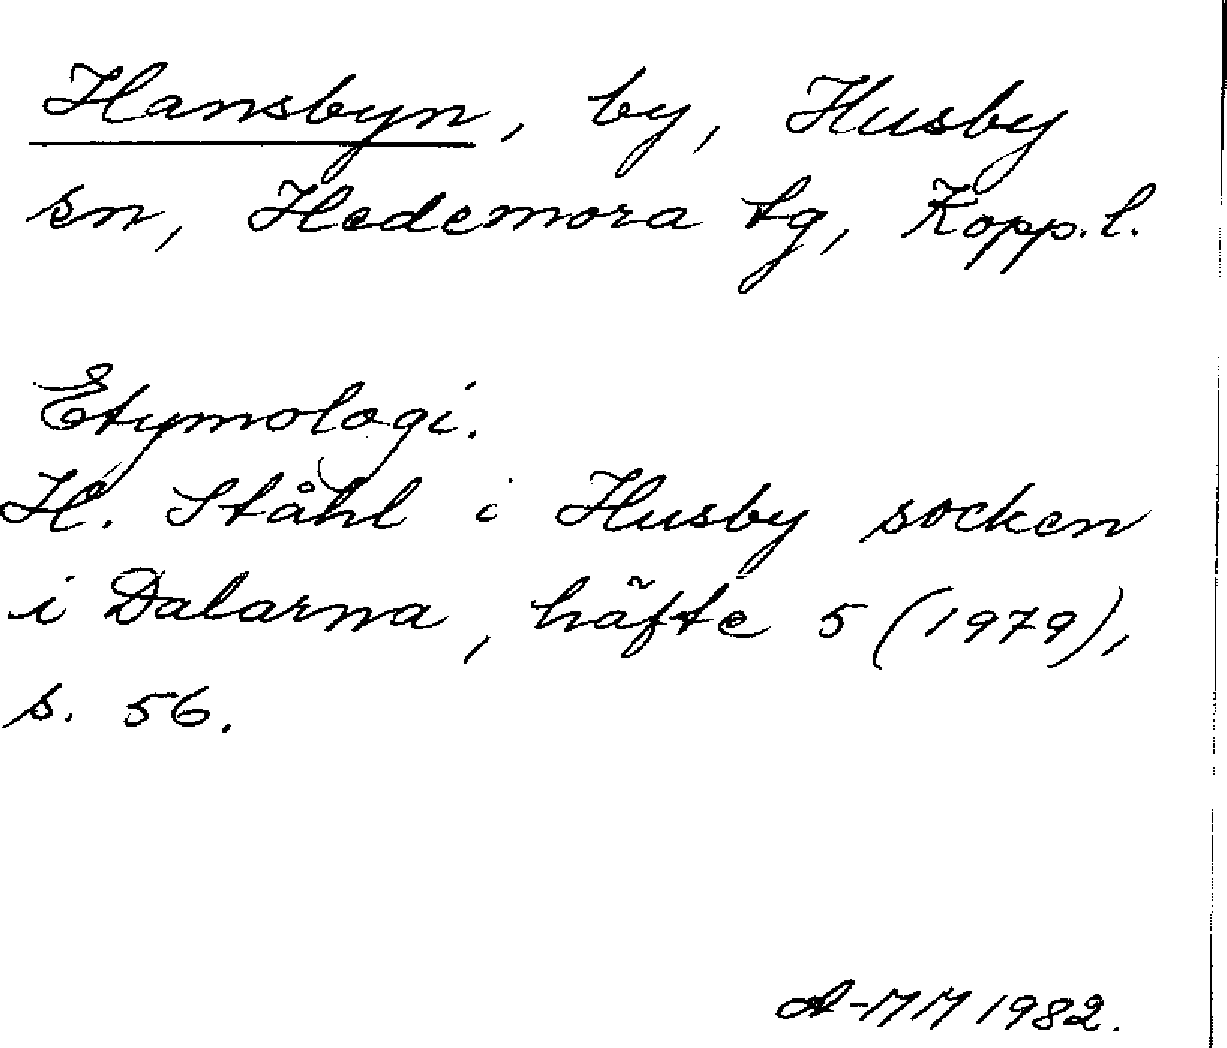 Hansbyn, by, Husby
sn, Hedemora tg, Kopp. l.
Etymologi.
H. Ståhl i Husby socken
i Dalarna, häfte 5 (1979),
s. 56.
A-MM 1982.